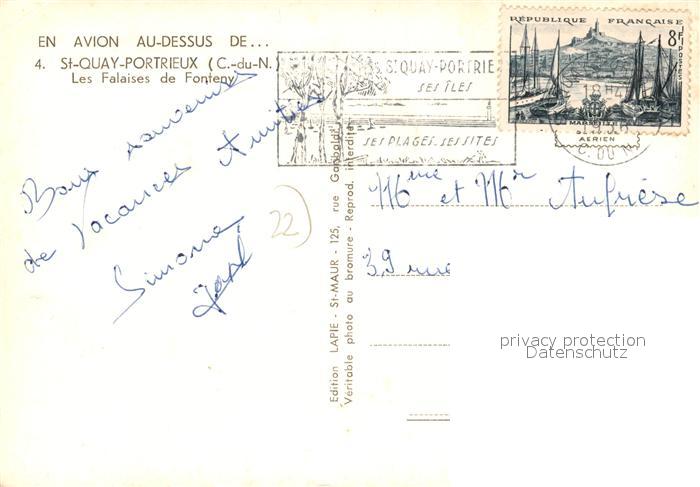 EN AVION AU-DESSUS DE...
4. St-QUAY-PORTRIEUX (C.-du-N.
Les Falaises de Fonteny
Bons souvenirs
de Vacances Amitiés
Simone
22
Edition LAPIE - St-MAUR - 125, rue Garibaldi
Véritable photo au bromure - Reprod. interdite
St QUAY-PORTRIE
SES ÎLES
SES PLAGES. SES SITES
RÉPUBLIQUE FRANÇAISE
8F
POSTES
MARSEILLE
18H
AERIEN
C. DU N
Mme et Mr Aufrèse
39 rue
privacy protection
Datenschutz